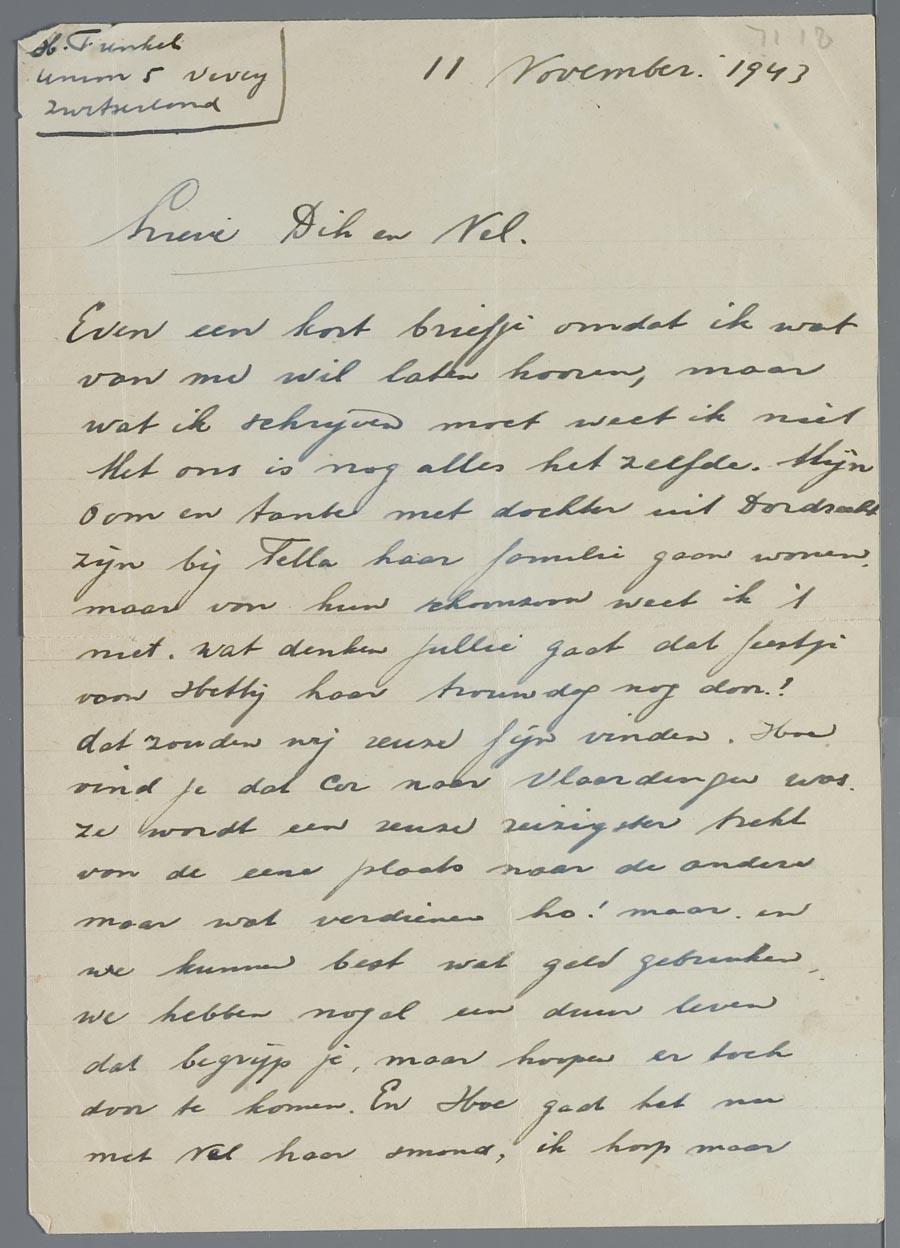 H. Frenkel
Union 5 Vevey
Zwitserland
11 November. 1943
Lieve Dik en Nel.
Even een kort briefje omdat ik wat
van me wil laten hooren, maar
wat ik schrijven moet weet ik niet
Met ons is nog alles het zelfde. Mijn
Oom en tante met dochter uit Dordrecht
zijn bij Tella haar familie gaan wonen.
maar van hun schoonzoon weet ik 't
niet. wat denken jullie gaat dat feestje
van Hettij haar trouwdag nog door.!
dat zouden wij reuze fijn vinden. Hoe
vind je dat Cor naar Vlaardingen was.
ze wordt een reuze reizigster trekt
van de eene plaats naar de andere
maar wat verdienen ho! maar. en
we kunnen best wat geld gebruiken,
we hebben nogal een duur leven
dat begrijp je, maar hoopen er toch
door te komen. En Hoe gaat het nu
met Nel haar mond, ik hoop maar